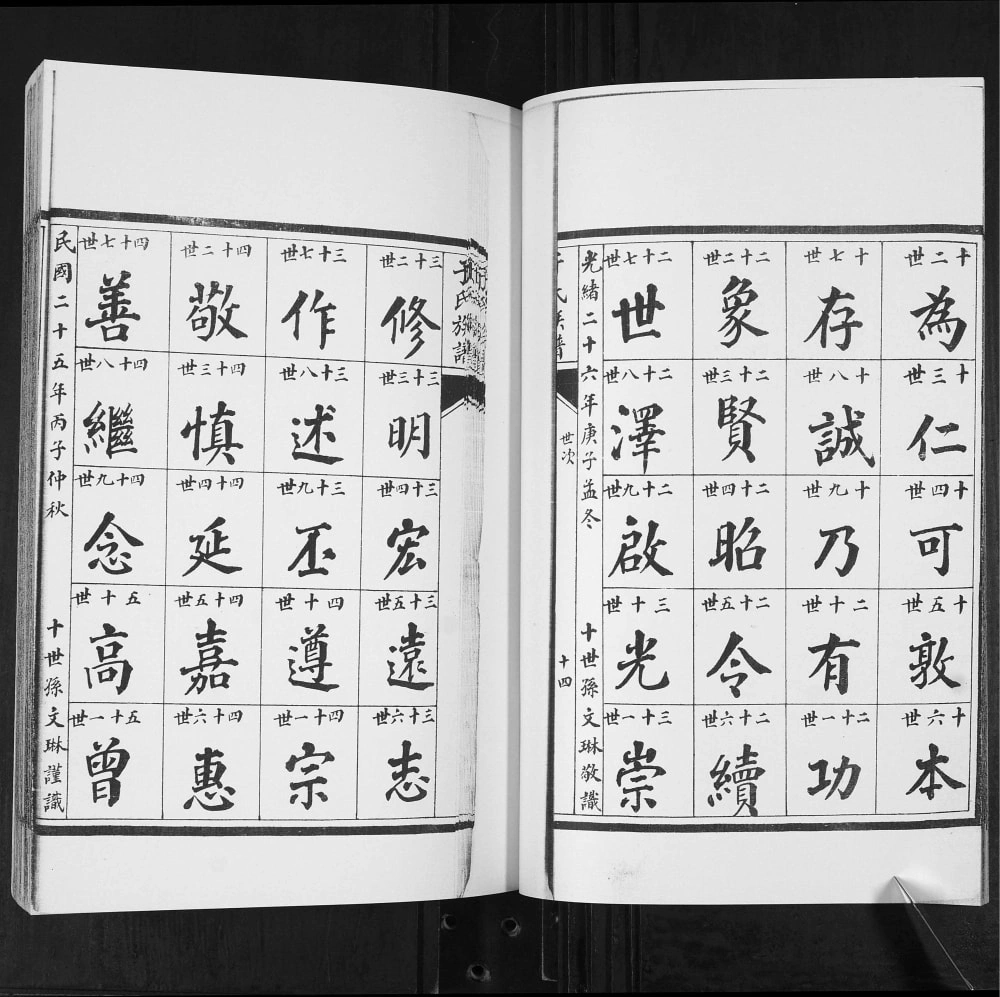 十二世
為
十三世
仁
十四世
可
十五世
敦
十六世
本
十七世
存
十八世
誠
十九世
乃
二十世
有
二十一世
功
二十二世
象
二十三世
賢
二十四世
昭
二十五世
令
二十六世
續
二十七世
世
二十八世
澤
二十九世
啟
三十世
光
三十一世
崇
光緒二十六年庚子孟冬 十世孫文琳敬識
世次
十四
于氏族譜
三十二世
修
三十三世
明
三十四世
宏
三十五世
遠
三十六世
志
三十七世
作
三十八世
述
三十九世
丕
四十世
遵
四十一世
宗
四十二世
敬
四十三世
慎
四十四世
延
四十五世
嘉
四十六世
惠
四十七世
善
四十八世
繼
四十九世
念
五十世
高
五十一世
曾
民國二十五年丙子仲秋 十世孫文琳謹識